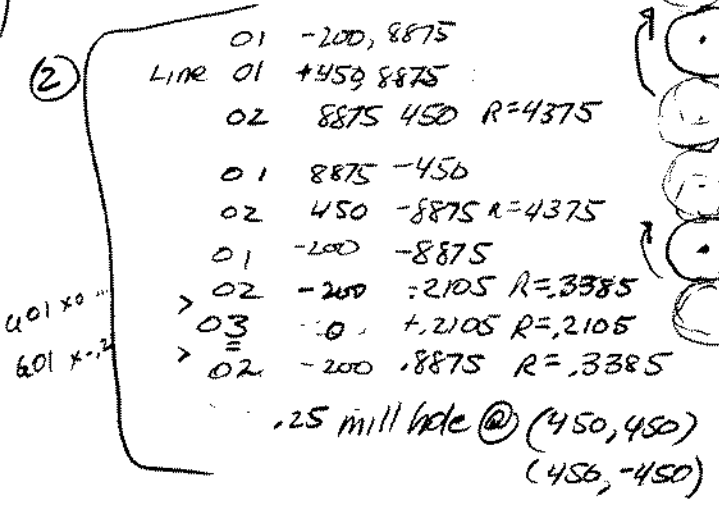 ②
01 -200, 8875
Line 01 +450, 8875
02 8875 450 R=4375
01 8875 -450
02 450 -8875 R=4375
01 -200 -8875
> 02 -200 -.2105 R=.3385
03 0 +.2105 R=.2105
> 02 -200 .8875 R=.3385
G01 x0
G01 x-.2
.25 mill hole @ (450, 450)
(450, -450)